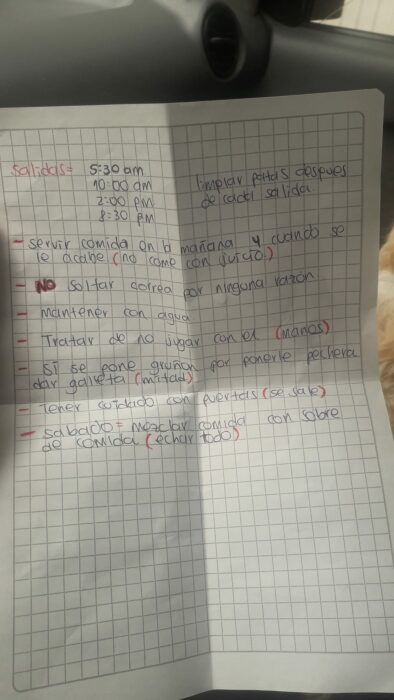 salidas= 5:30 am
10:00 am
2:00 pm
8:30 pm
limpiar patas despues
de cada salida
- servir comida en la mañana y cuando se
le acabe (no come con juicio)
- NO soltar correa por ninguna razón
- mantener con agua
- Tratar de no jugar con el (manos)
- Si se pone gruñon por ponerle pechera
dar galleta (mitad)
- Tener cuidado con puertas (se sale)
- sabado= mezclar comida con sobre
de comida (echar todo)